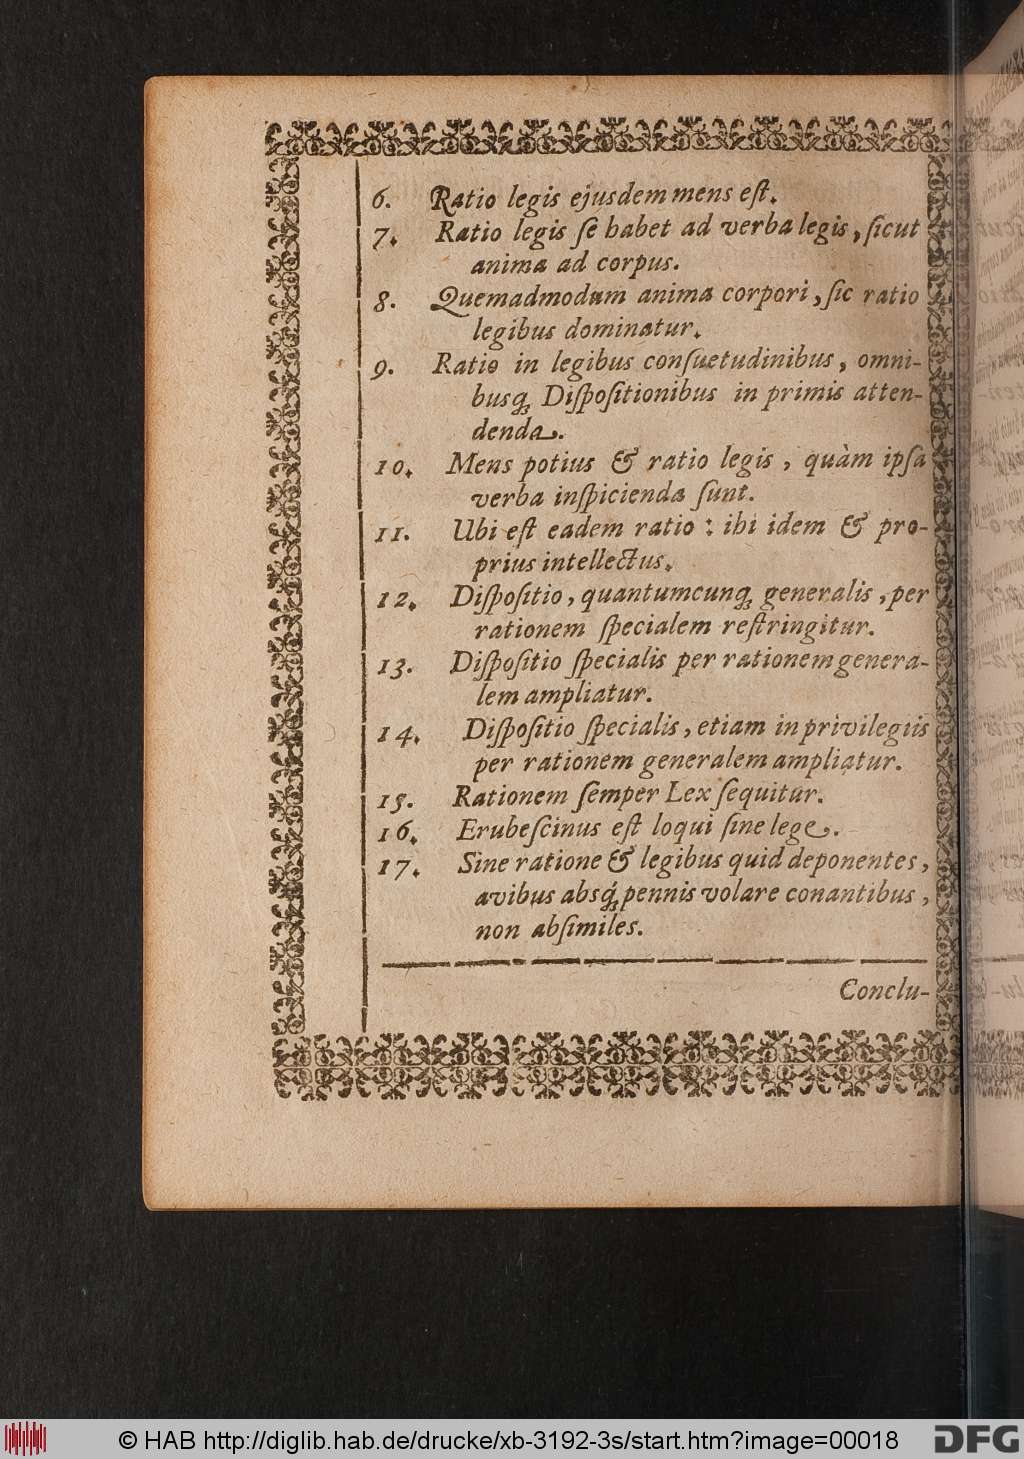 6. Ratio legis ejusdem mens eſt.
7. Ratio legis ſe babet ad verba legis, ſicut
anima ad corpus.
8. Quemadmodum anima corpori, ſic ratio
legibus dominatur.
9. Ratio in legibus conſuetudinibus, omni-
busq́ꝫ Diſpoſitionibus in primis atten-
denda.
10. Mens potius & ratio legis, quàm ipſa
verba inſpicienda ſunt.
11. Ubi eſt eadem ratio: ibi idem & pro-
prius intellectus.
12. Diſpoſitio, quantumcunqꝫ generalis, per
rationem ſpecialem reſtringitur.
13. Diſpoſitio ſpecialis per rationem genera-
lem ampliatur.
14. Diſpoſitio ſpecialis, etiam in privilegiis
per rationem generalem ampliatur.
15. Rationem ſemper Lex ſequitur.
16. Erubeſcinus eſt loqui ſine lege.
17. Sine ratione & legibus quid deponentes,
avibus absq́ꝫ pennis volare conantibus,
non abſimiles.
Conclu-
© HAB http://diglib.hab.de/drucke/xb-3192-3s/start.htm?image=00018
DFG